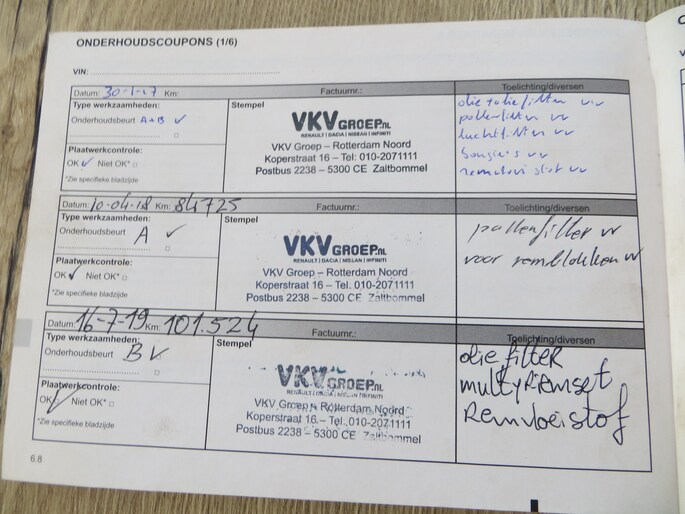 ONDERHOUDSCOUPONS (1/6)
VIN:
Datum: 30-1-17 Km: Factuurnr.: Toelichting/diversen
Type werkzaamheden: Stempel
Onderhoudsbeurt A+B
VKV GROEP.NL
RENAULT | DACIA | NISSAN | INFINITI
VKV Groep – Rotterdam Noord
Koperstraat 16 – Tel: 010-2071111
Postbus 2238 – 5300 CE Zaltbommel
Plaatwerkcontrole:
OK Niet OK*
*Zie specifieke bladzijde
olie + oliefilter vv
pollenfilter vv
luchtfilter vv
bougie's vv
remvloeistof vv
Datum: 10-04-18 Km: 84725 Factuurnr.: Toelichting/diversen
Type werkzaamheden: Stempel
Onderhoudsbeurt A
VKV GROEP.NL
RENAULT | DACIA | NISSAN | INFINITI
VKV Groep – Rotterdam Noord
Koperstraat 16 – Tel: 010-2071111
Postbus 2238 – 5300 CE Zaltbommel
Plaatwerkcontrole:
OK Niet OK*
*Zie specifieke bladzijde
pollenfilter vv
voor remblokken vv
Datum: 16-7-19 Km: 101.524 Factuurnr.: Toelichting/diversen
Type werkzaamheden: Stempel
Onderhoudsbeurt B
VKV GROEP.NL
RENAULT | DACIA | NISSAN | INFINITI
VKV Groep – Rotterdam Noord
Koperstraat 16 – Tel: 010-2071111
Postbus 2238 – 5300 CE Zaltbommel
Plaatwerkcontrole:
OK Niet OK*
*Zie specifieke bladzijde
olie filter
multyriemset
Remvloeistof
6.8